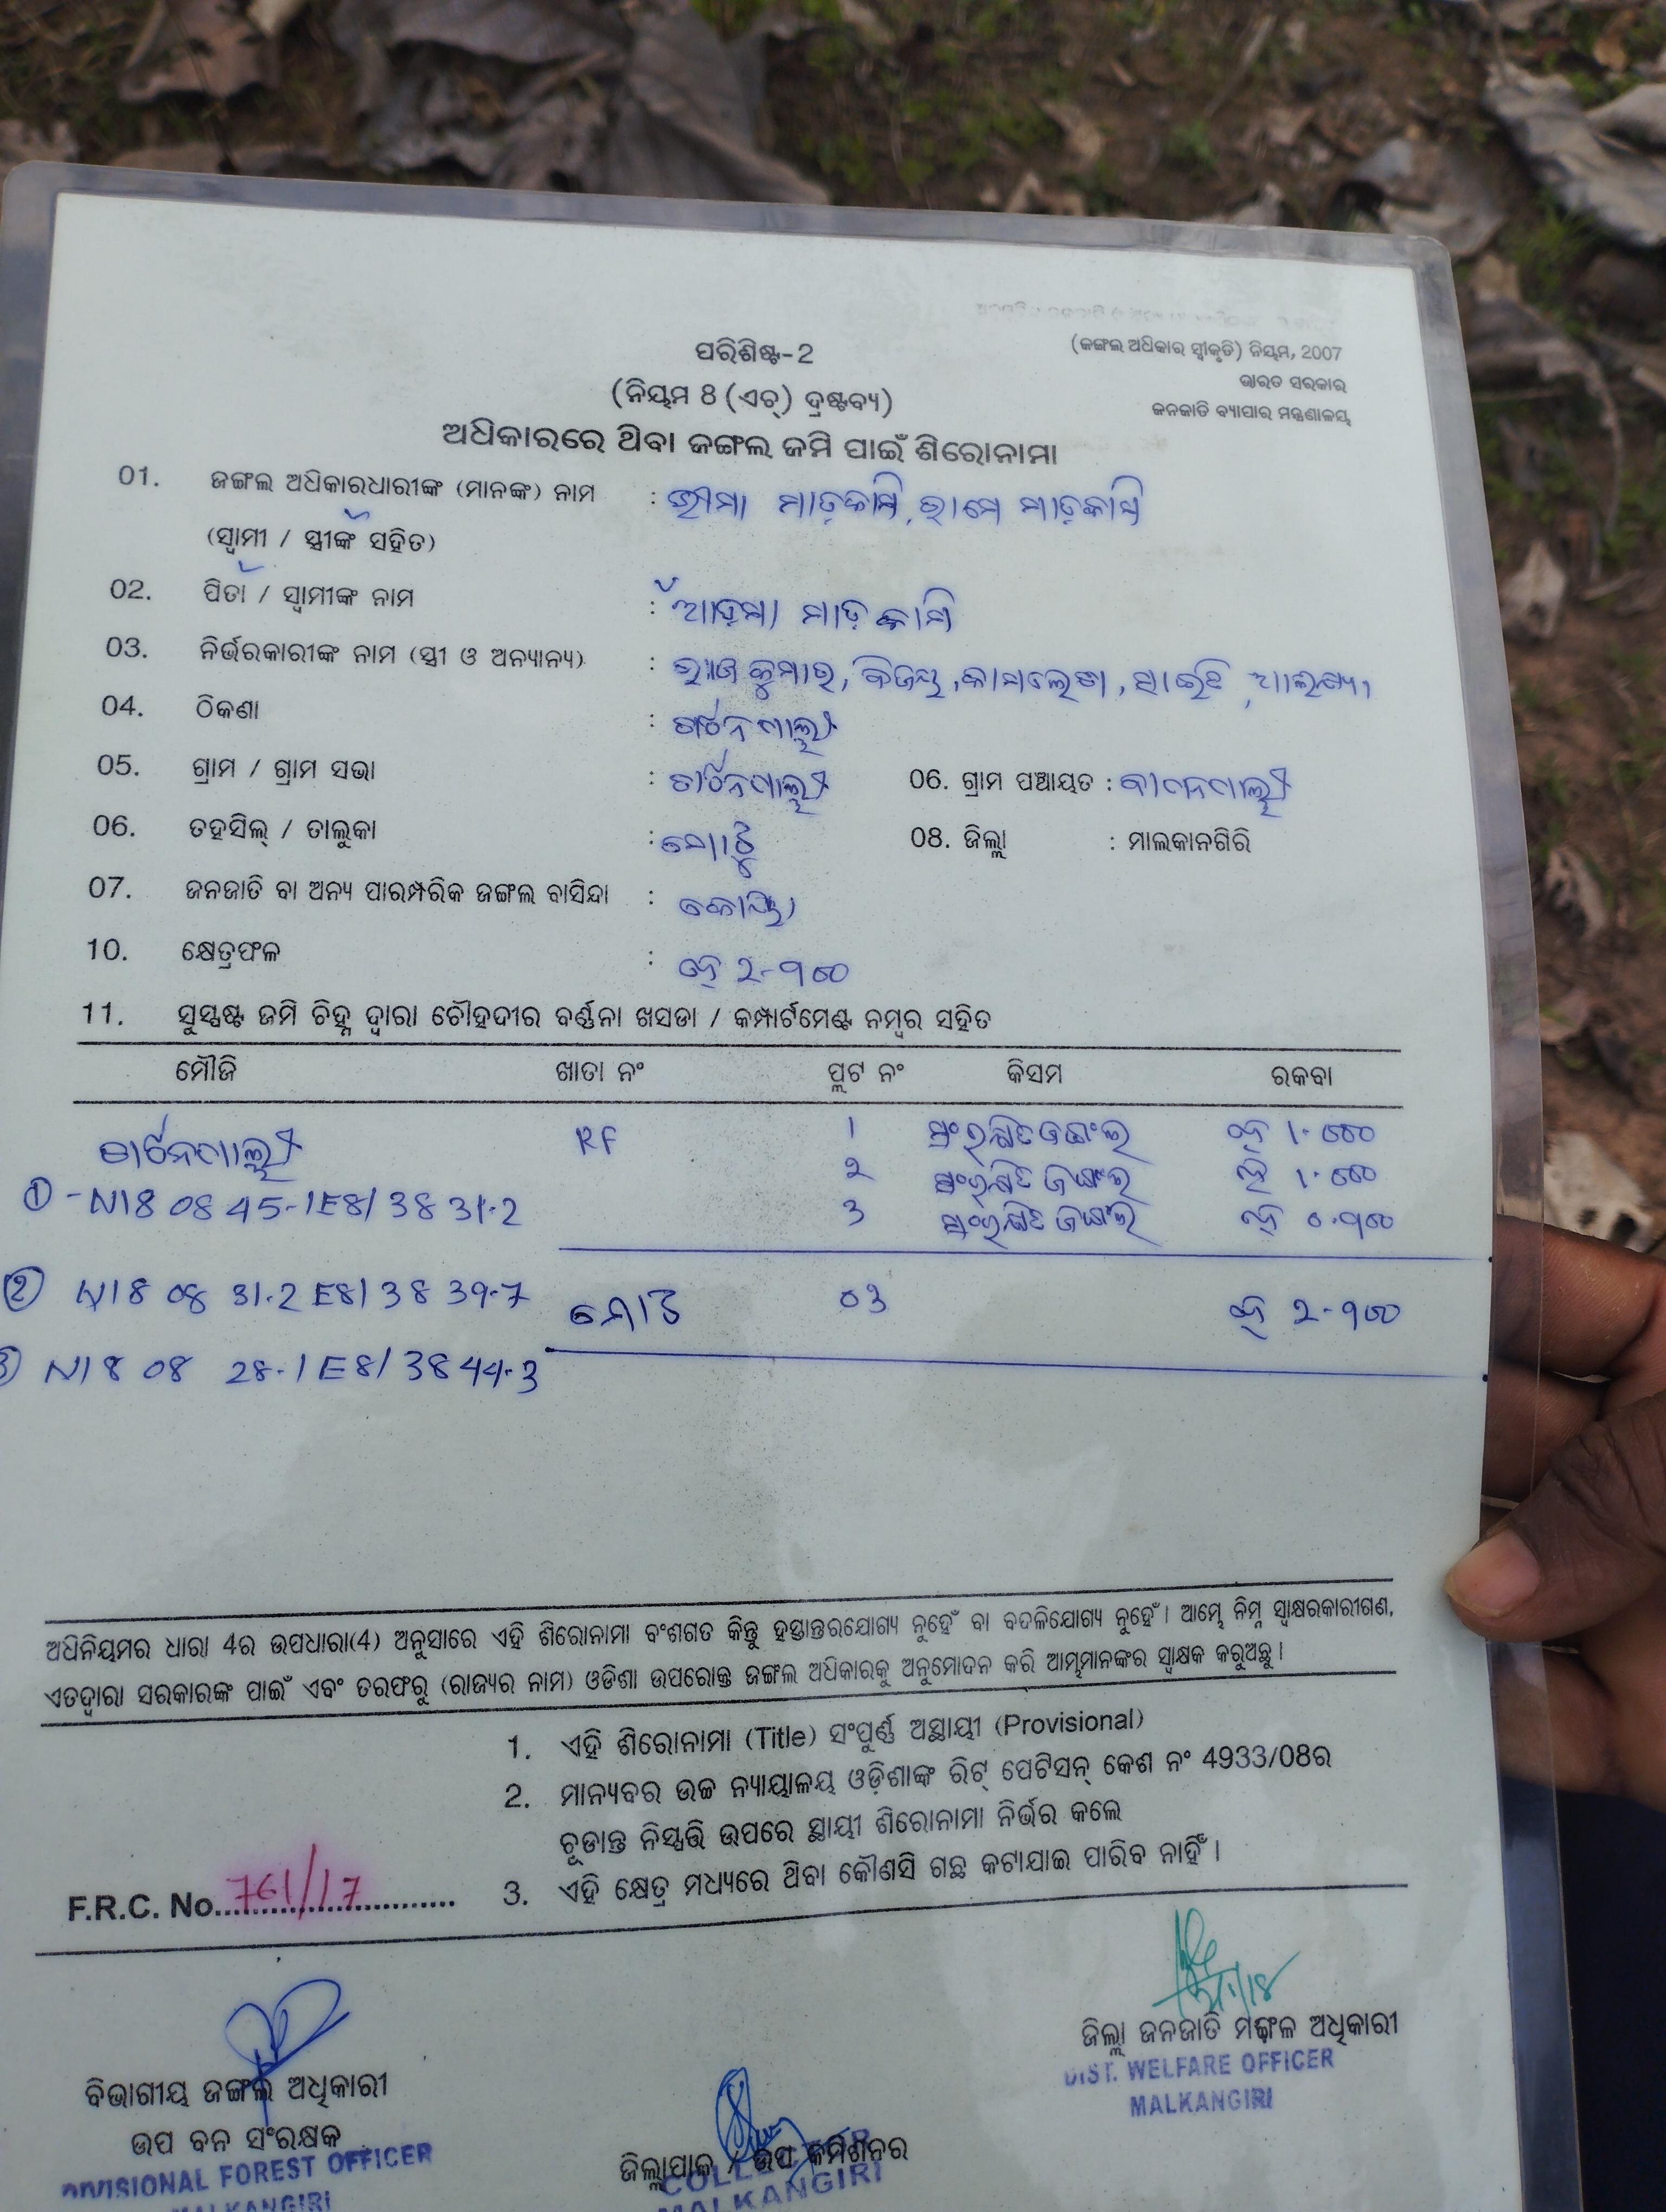 ପରିଶିଷ୍ଟ-2
(ଜଙ୍ଗଲ ଅଧିକାର ସ୍ୱୀକୃତି) ନିୟମ, 2007
ଭାରତ ସରକାର
ଜନଜାତି ବ୍ୟାପାର ମନ୍ତ୍ରଣାଳୟ
(ନିୟମ 8 (ଏଚ୍) ଦ୍ରଷ୍ଟବ୍ୟ)
ଅଧିକାରରେ ଥିବା ଜଙ୍ଗଲ ଜମି ପାଇଁ ଶିରୋନାମା
01. ଜଙ୍ଗଲ ଅଧିକାରଧାରୀଙ୍କ (ମାନଙ୍କ) ନାମ : ଭୀମା ମାଡ଼କାମି, ରାମେ ମାଡ଼କାମି
(ସ୍ୱାମୀ / ସ୍ତ୍ରୀଙ୍କ ସହିତ)
02. ପିତା / ସ୍ୱାମୀଙ୍କ ନାମ : ମାଡ଼କାମି
03. ନିର୍ଭରକାରୀଙ୍କ ନାମ (ସ୍ତ୍ରୀ ଓ ଅନ୍ୟାନ୍ୟ) :
04. ଠିକଣା :
05. ଗ୍ରାମ / ଗ୍ରାମ ସଭା : 06. ଗ୍ରାମ ପଞ୍ଚାୟତ :
06. ତହସିଲ୍ / ତାଲୁକା : ମୋଟୁ 08. ଜିଲ୍ଲା : ମାଲକାନଗିରି
07. ଜନଜାତି ବା ଅନ୍ୟ ପାରମ୍ପରିକ ଜଙ୍ଗଲ ବାସିନ୍ଦା : କୋୟା
10. କ୍ଷେତ୍ରଫଳ : ହେ ୨-୩୦୦
11. ସୁସ୍ପଷ୍ଟ ଜମି ଚିହ୍ନ ଦ୍ୱାରା ଚୌହଦୀର ବର୍ଣ୍ଣନା ଖସଡା / କମ୍ପାର୍ଟମେଣ୍ଟ ନମ୍ବର ସହିତ
ମୌଜି ଖାତା ନଂ ପ୍ଲଟ ନଂ କିସମ ରକବା
RF 1 ସଂରକ୍ଷିତ ଜଙ୍ଗଲ ହେ 1.000
୨ ସଂରକ୍ଷିତ ଜଙ୍ଗଲ ହେ 1.000
① - N18 08 45.1 E81 38 31.2 3 ସଂରକ୍ଷିତ ଜଙ୍ଗଲ
② N18 08 31.2 E81 38 39.7 ମୋଟ ୦୩
③ N18 08 28.1 E81 38 44.3
ଅଧିନିୟମର ଧାରା 4ର ଉପଧାରା(4) ଅନୁସାରେ ଏହି ଶିରୋନାମା ବଂଶଗତ କିନ୍ତୁ ହସ୍ତାନ୍ତରଯୋଗ୍ୟ ନୁହେଁ ବା ବଦଳିଯୋଗ୍ୟ ନୁହେଁ । ଆମ୍ଭେ ନିମ୍ନ ସ୍ୱାକ୍ଷରକାରୀଗଣ,
ଏତଦ୍ୱାରା ସରକାରଙ୍କ ପାଇଁ ଏବଂ ତରଫରୁ (ରାଜ୍ୟର ନାମ) ଓଡିଶା ଉପରୋକ୍ତ ଜଙ୍ଗଲ ଅଧିକାରକୁ ଅନୁମୋଦନ କରି ଆମ୍ଭମାନଙ୍କର ସ୍ୱାକ୍ଷକ କରୁଅଛୁ ।
1. ଏହି ଶିରୋନାମା (Title) ସଂପୂର୍ଣ୍ଣ ଅସ୍ଥାୟୀ (Provisional)
2. ମାନ୍ୟବର ଉଚ୍ଚ ନ୍ୟାୟାଳୟ ଓଡ଼ିଶାଙ୍କ ରିଟ୍ ପେଟିସନ୍ କେଶ ନଂ 4933/08ର
ଚୂଡାନ୍ତ ନିସ୍ପତ୍ତି ଉପରେ ସ୍ଥାୟୀ ଶିରୋନାମା ନିର୍ଭର କଲେ
3. ଏହି କ୍ଷେତ୍ର ମଧ୍ୟରେ ଥିବା କୌଣସି ଗଛ କଟାଯାଇ ପାରିବ ନାହିଁ ।
F.R.C. No. 761/17
ଜିଲ୍ଲା ଜନଜାତି ମଙ୍ଗଳ ଅଧିକାରୀ
DIST. WELFARE OFFICER
MALKANGIRI
ବିଭାଗୀୟ ଜଙ୍ଗଲ ଅଧିକାରୀ
ଉପ ବନ ସଂରକ୍ଷକ
DIVISIONAL FOREST OFFICER
MALKANGIRI
ଜିଲ୍ଲାପାଳ / ଉପ କମିଶନର
COLLECTOR
MALKANGIRI